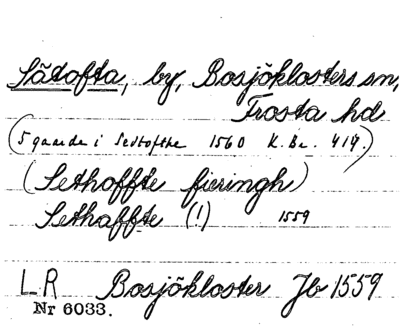 Sätofta, by, Bosjöklosters sn,
Frosta hd
(5 gaarde i Sedtofthe 1560 K. Br. 419.)
(Sethoffte fieringh)
Sethaffte (!) 1559
L R Bosjökloster Jb 1559
Nr 6033.